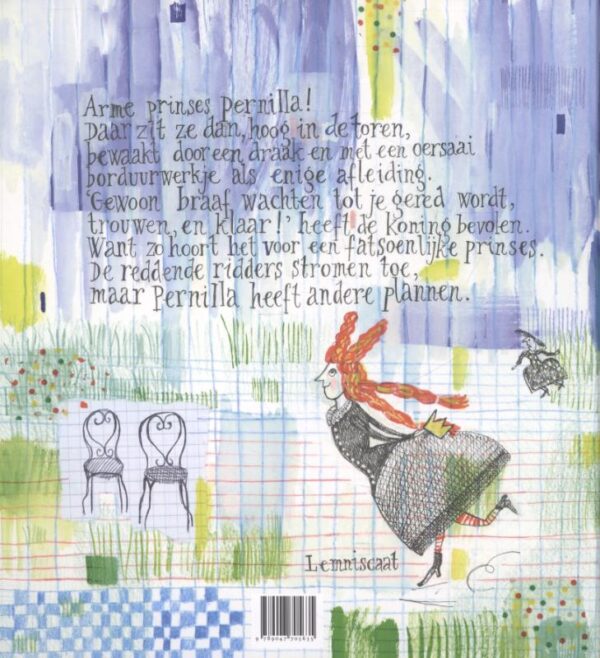 Arme prinses Pernilla!
Daar zit ze dan, hoog in de toren,
bewaakt door een draak en met een oersaai
borduurwerkje als enige afleiding.
'Gewoon braaf wachten tot je gered wordt,
trouwen, en klaar!' heeft de koning bevolen.
Want zo hoort het voor een fatsoenlijke prinses.
De reddende ridders stromen toe,
maar Pernilla heeft andere plannen.
Lemniscaat